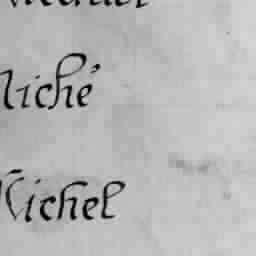 Miché
Michel